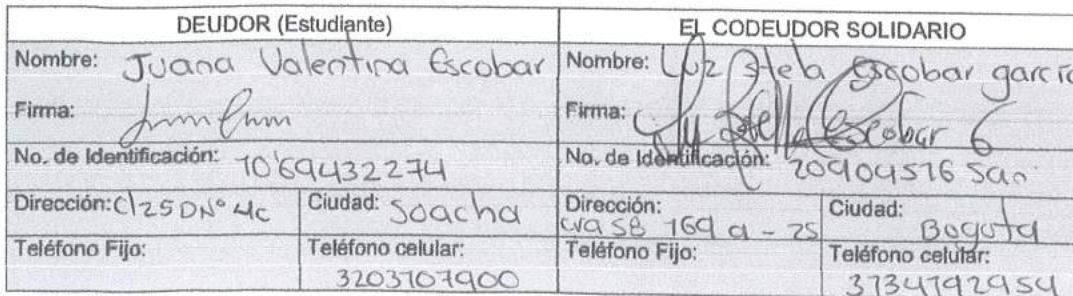 DEUDOR (Estudiante)
EL CODEUDOR SOLIDARIO
Nombre: Juana Valentina Escobar
Nombre: Luz Stela Escobar garcía
Firma:
Firma: Escobar G
No. de Identificación: 10'69432274
No. de Identificación: 20904516 San
Dirección: Cl 25 DN° 4c
Ciudad: Soacha
Dirección: cra 58 169 a - 25
Ciudad: Bogota
Teléfono Fijo:
Teléfono celular: 3203707900
Teléfono Fijo:
Teléfono celular: 3134792954